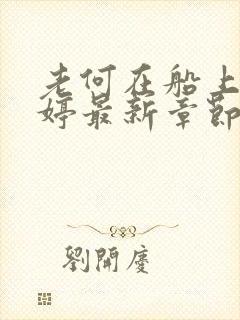 老何在船上
婷最新章節
劉開慶